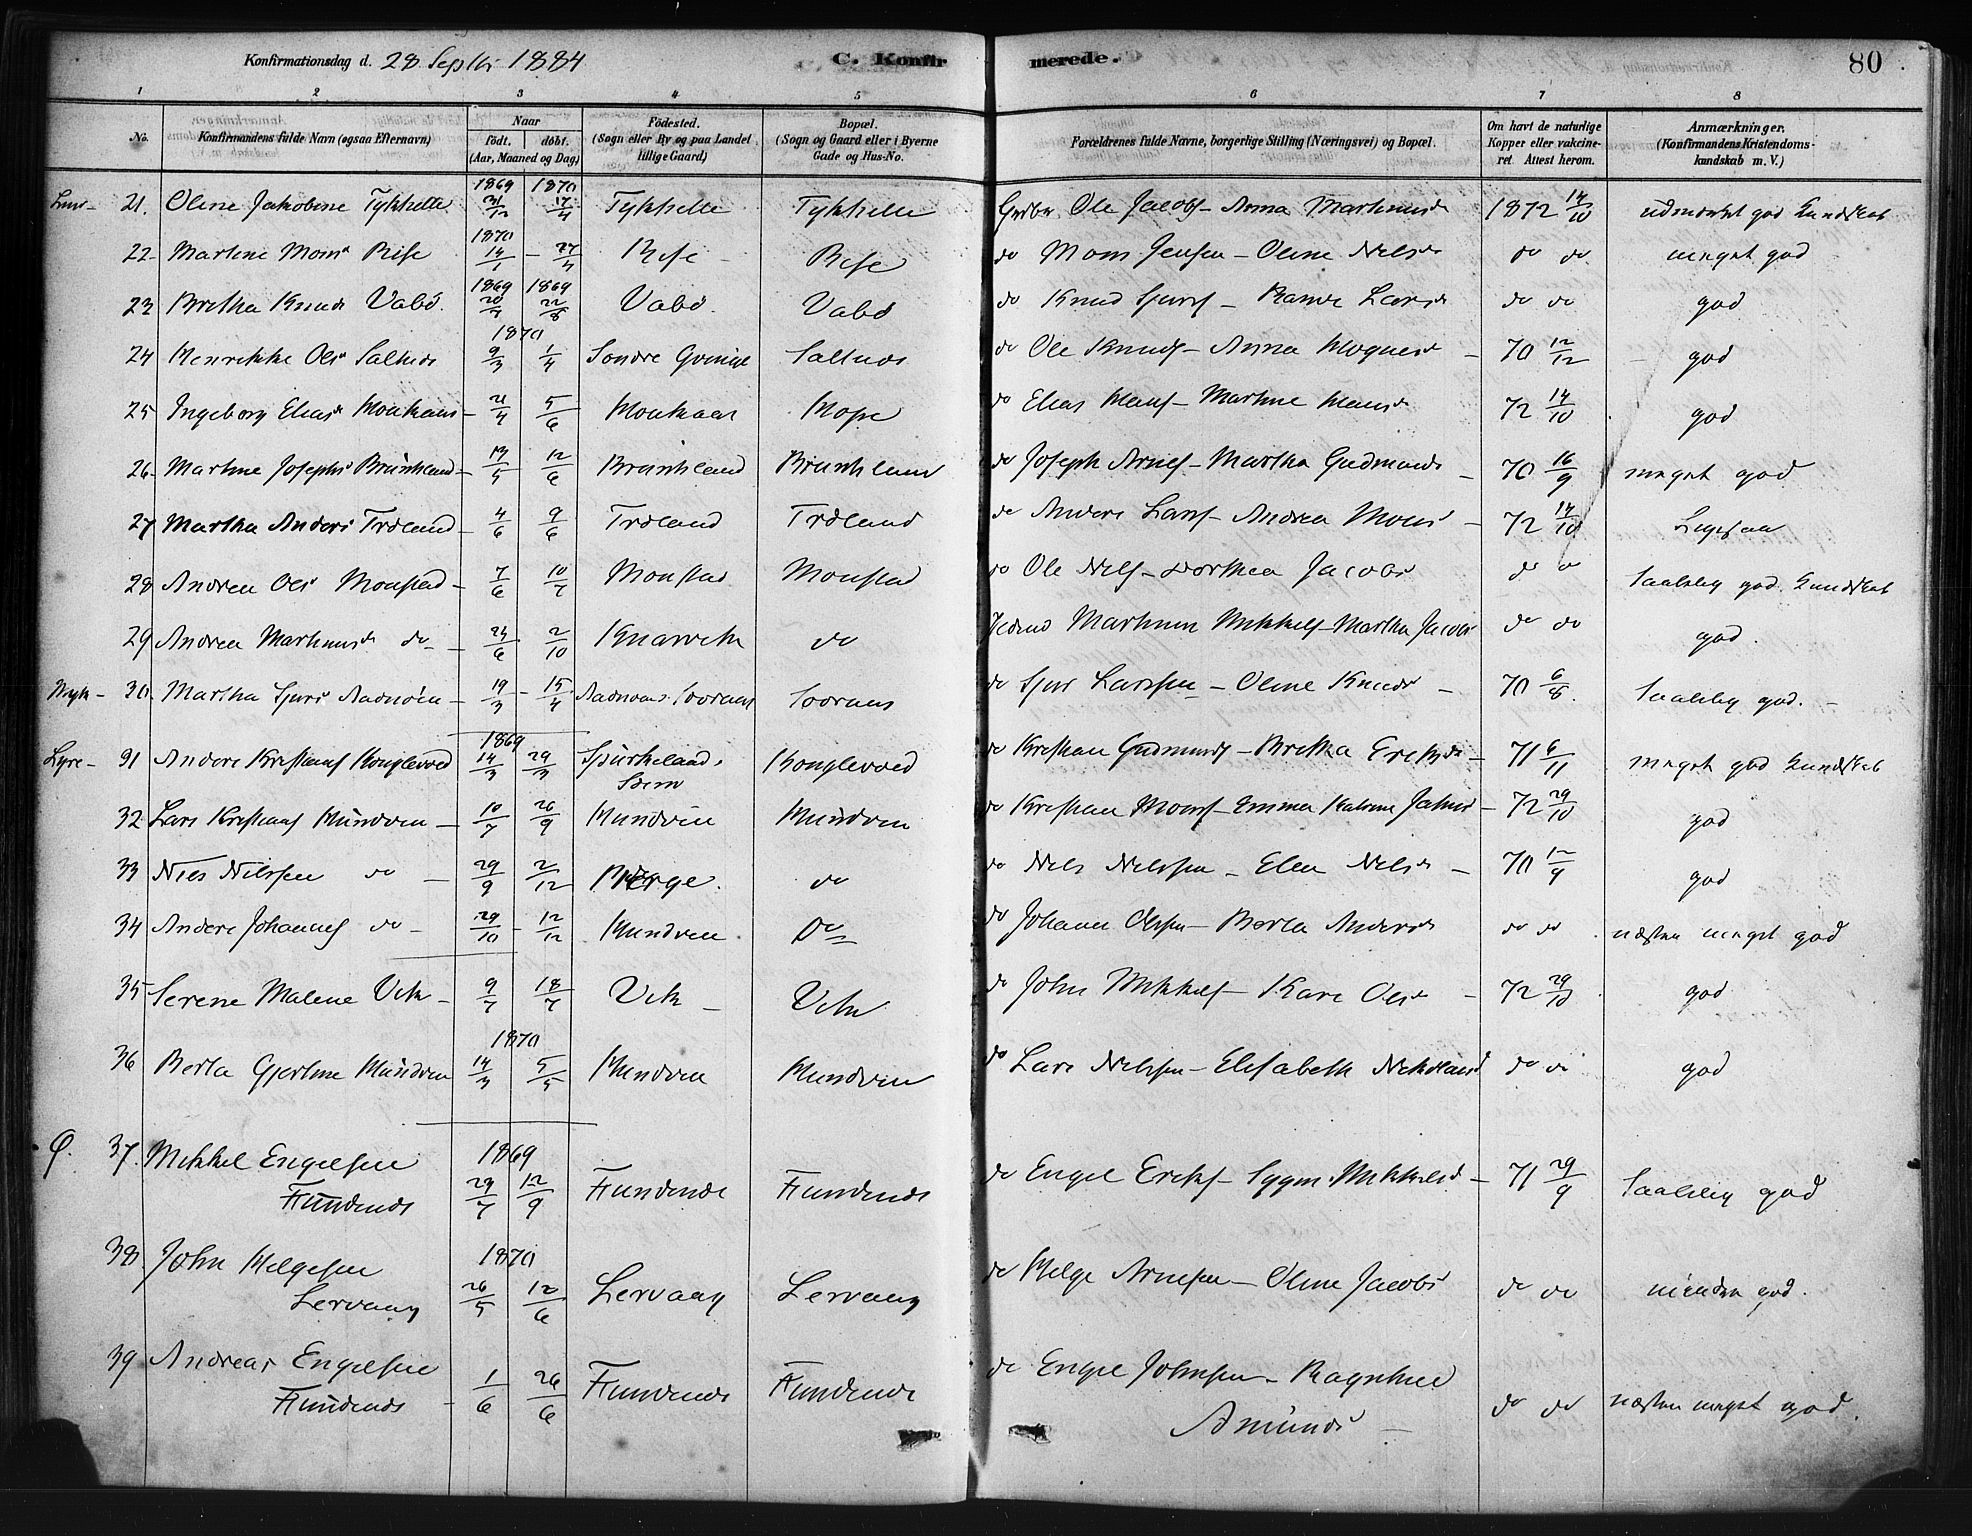 Konfirmationsdag d. 28 Septbr 1884 C. Konfirmerede. 80
1 2 3 4 5 6 7 8
No. Konfirmandens fulde Navn (ogsaa Efternavn) Naar født. døbt. (Aar, Maaned og Dag) Fødested. (Sogn eller By og paa Landet tillige Gaard) Bopæl. (Sogn og Gaard eller i Byerne Gade og Hus-No. Forældrenes fulde Navne, borgerlige Stilling (Næringsvei) og Bopæl. Om havt de naturlige Kopper eller vakcineret. Attest herom. Anmærkninger. (Konfirmandens Kristendomskundskab m. V.)
21. Oline Jakobine 1869 31/12 1870 17/4 Ole Jacobs - Anna Martinusd 1872 14/10 udmærket god Kundskab
22 Martine Monsd Rise 1870 14/1 - 27/4 Rise Rise do Mons Jensen - Oline Nelsd do do meget god
23 Bretha Knuds Vabø 1869 20/7 1869 22/8 Vabø. Vabø do Knud do do god
1870
24 Henrikke Olsd 9/3 1/4 Søndre do Ole Knuds - Anna Magnesd - 70 12/12 god
25 Ingeborg Eliasd 21/4 5/6 Hope do Elias Hans - Martine Hansd 72 14/10 god
26 Martine Josephs - 19/5 12/6 do Joseph Arnes - Martha Gudmunds - 70 16/9 meget god
27 Martha Anders Trøland - 4/6 9/6 Trøland Trøland do Anders Lars - Andrea Mons - 72 14/10 Ligesaa
28 Andrea Ols Monstad - 7/6 10/7 Monstad Monstad do Ole Nels - Dorthea Jacobs do do taalelig god Kundskab
29 Andrea Martinusd do - 24/6 2/10 Knarvik do Martinus Mikkels - Martha Jacobs do do god.
30. Martha Sjurs Aadnøen - 19/3 - 15/4 do Sjur Larssen - Oline Knuds - 70 6/8. taalelig god. -
Lyre - 31 Anders Kristians Konglevold 1869 14/3 29/3 Konglevold do Kristian Gudmunds - Bretha Eriksd - 71 6/11 meget god Kundskab
32 Lars Kristians Mundven - 10/7 26/9 Mundven Mundven do Kristian Mons - Emma Katrine - 72 29/10 god
33 Niels Nilssen do - 29/9 2/12 Berge. do do Nels Nelssen - Elen Nelsd - 70 12/9 god
34 Anders Johannes do - 29/10 - 12/12 Mundven Do do Johannes Olssen - Berta Andersd do do næsten meget god
35 Serene Malene Vik - 9/7 18/7 Vik - Vik do John Mikkels - Kari Olsd - 72 29/10 god
1870
36 Berta Gjertine Mundven 14/3 5/5 Mundven Mundven do Lars Nelssen - Elisabeth do do god
Ø. 37. Mikkel Engelsen 1869
Fundenes 29/7 12/9 Fundenes Fundenes do Engel Eriks - Mikkelsd - 71 29/9 taalelig god
38. John Helgesen 1870
Lervaag 26/5 12/6 Lervaag Lervaag do Helge Arnesen - Oline Jacobs do do mindre god.
39 Andreas Engelsen do Engel Johnsen - Ragnhild
Fundenes - 1/6 26/6 Fundenes Fundenes Amunds - do do næsten meget god.